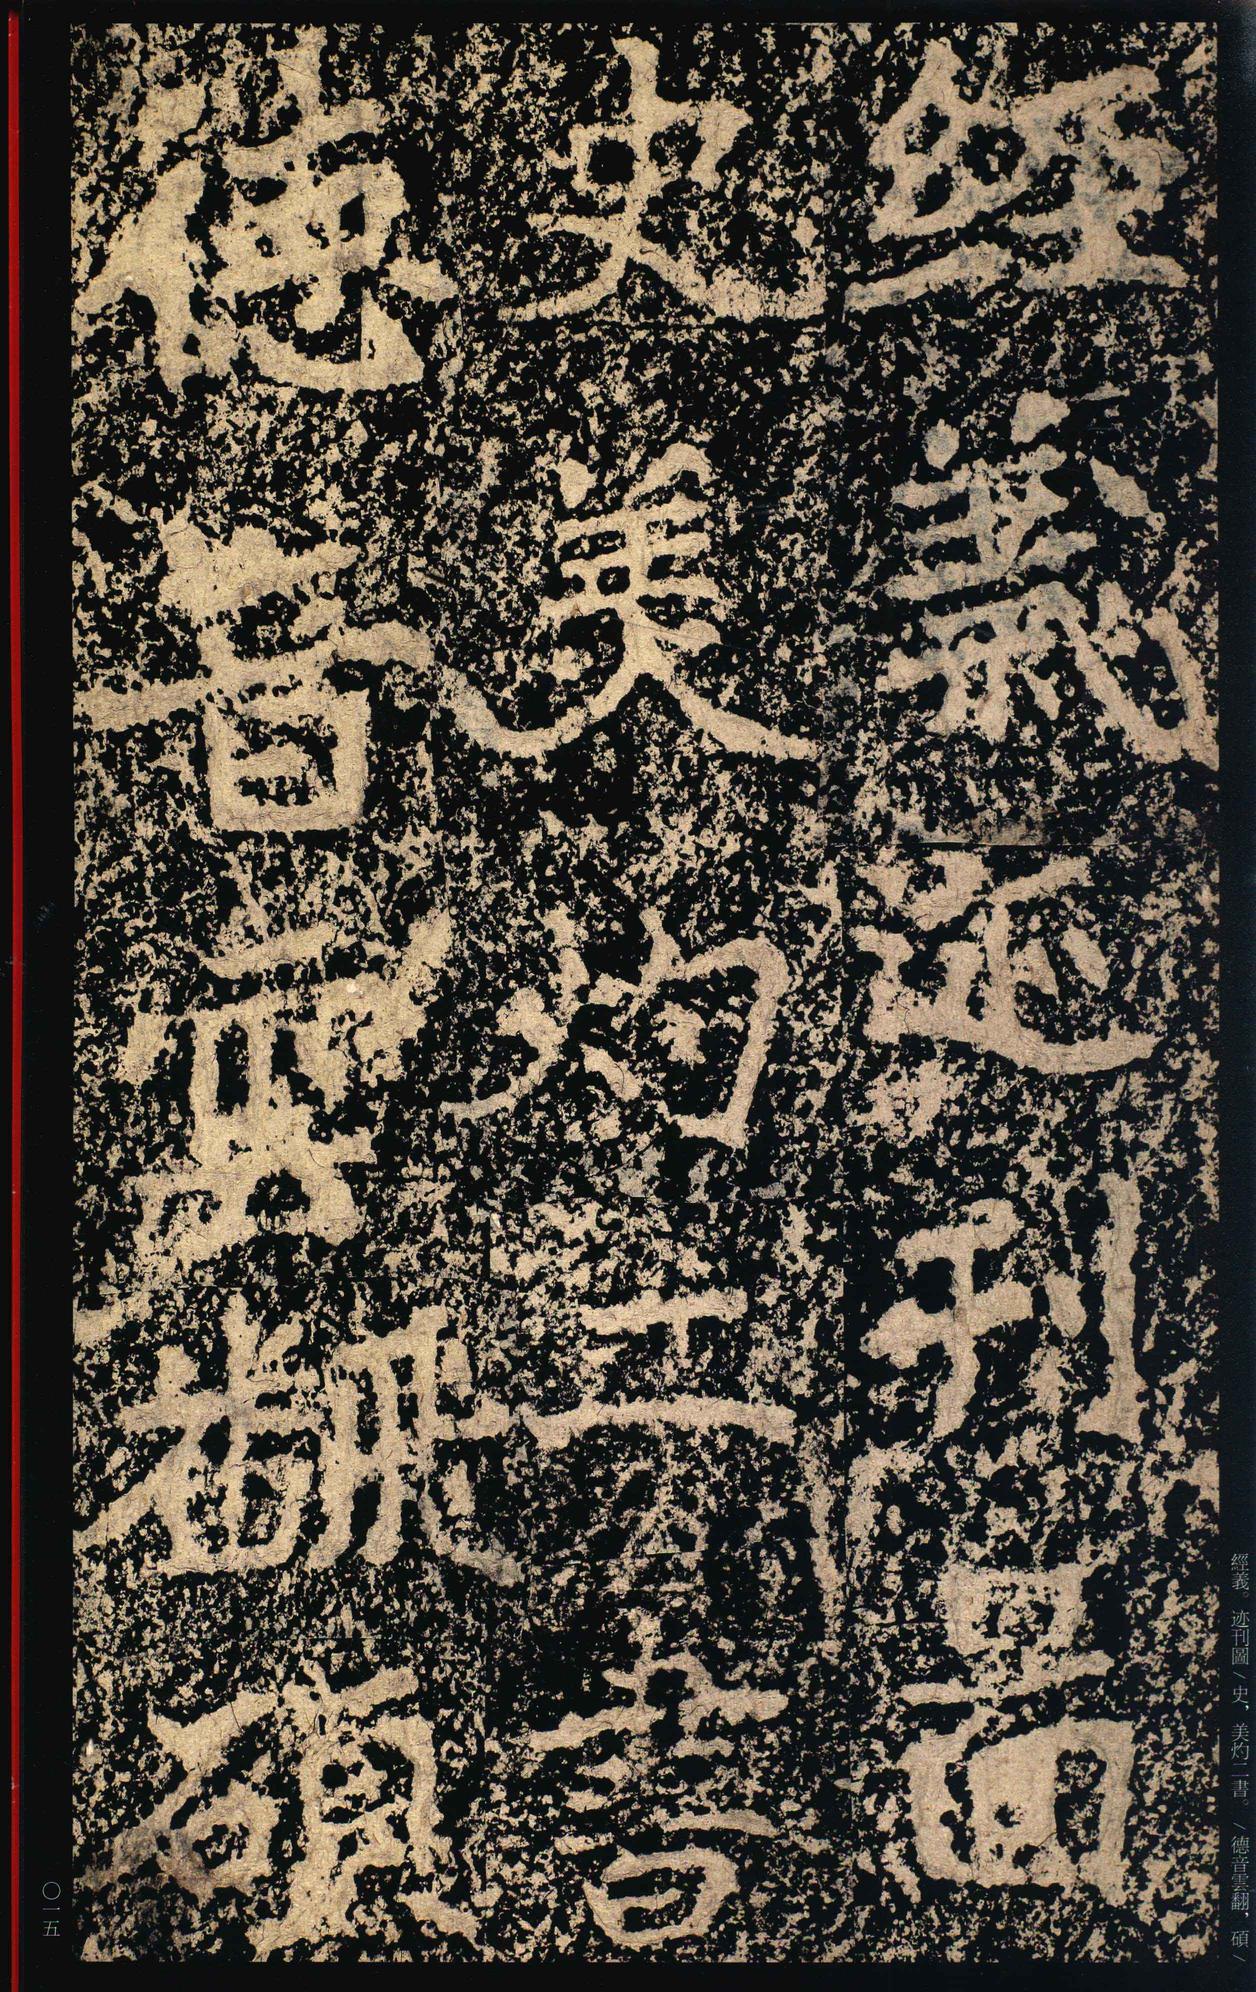 經義迹刊啚
史美灼二書
德音雲翻碩
經義。迹刊圖/史，美灼二書。/德音雲翻，碩/
〇一五